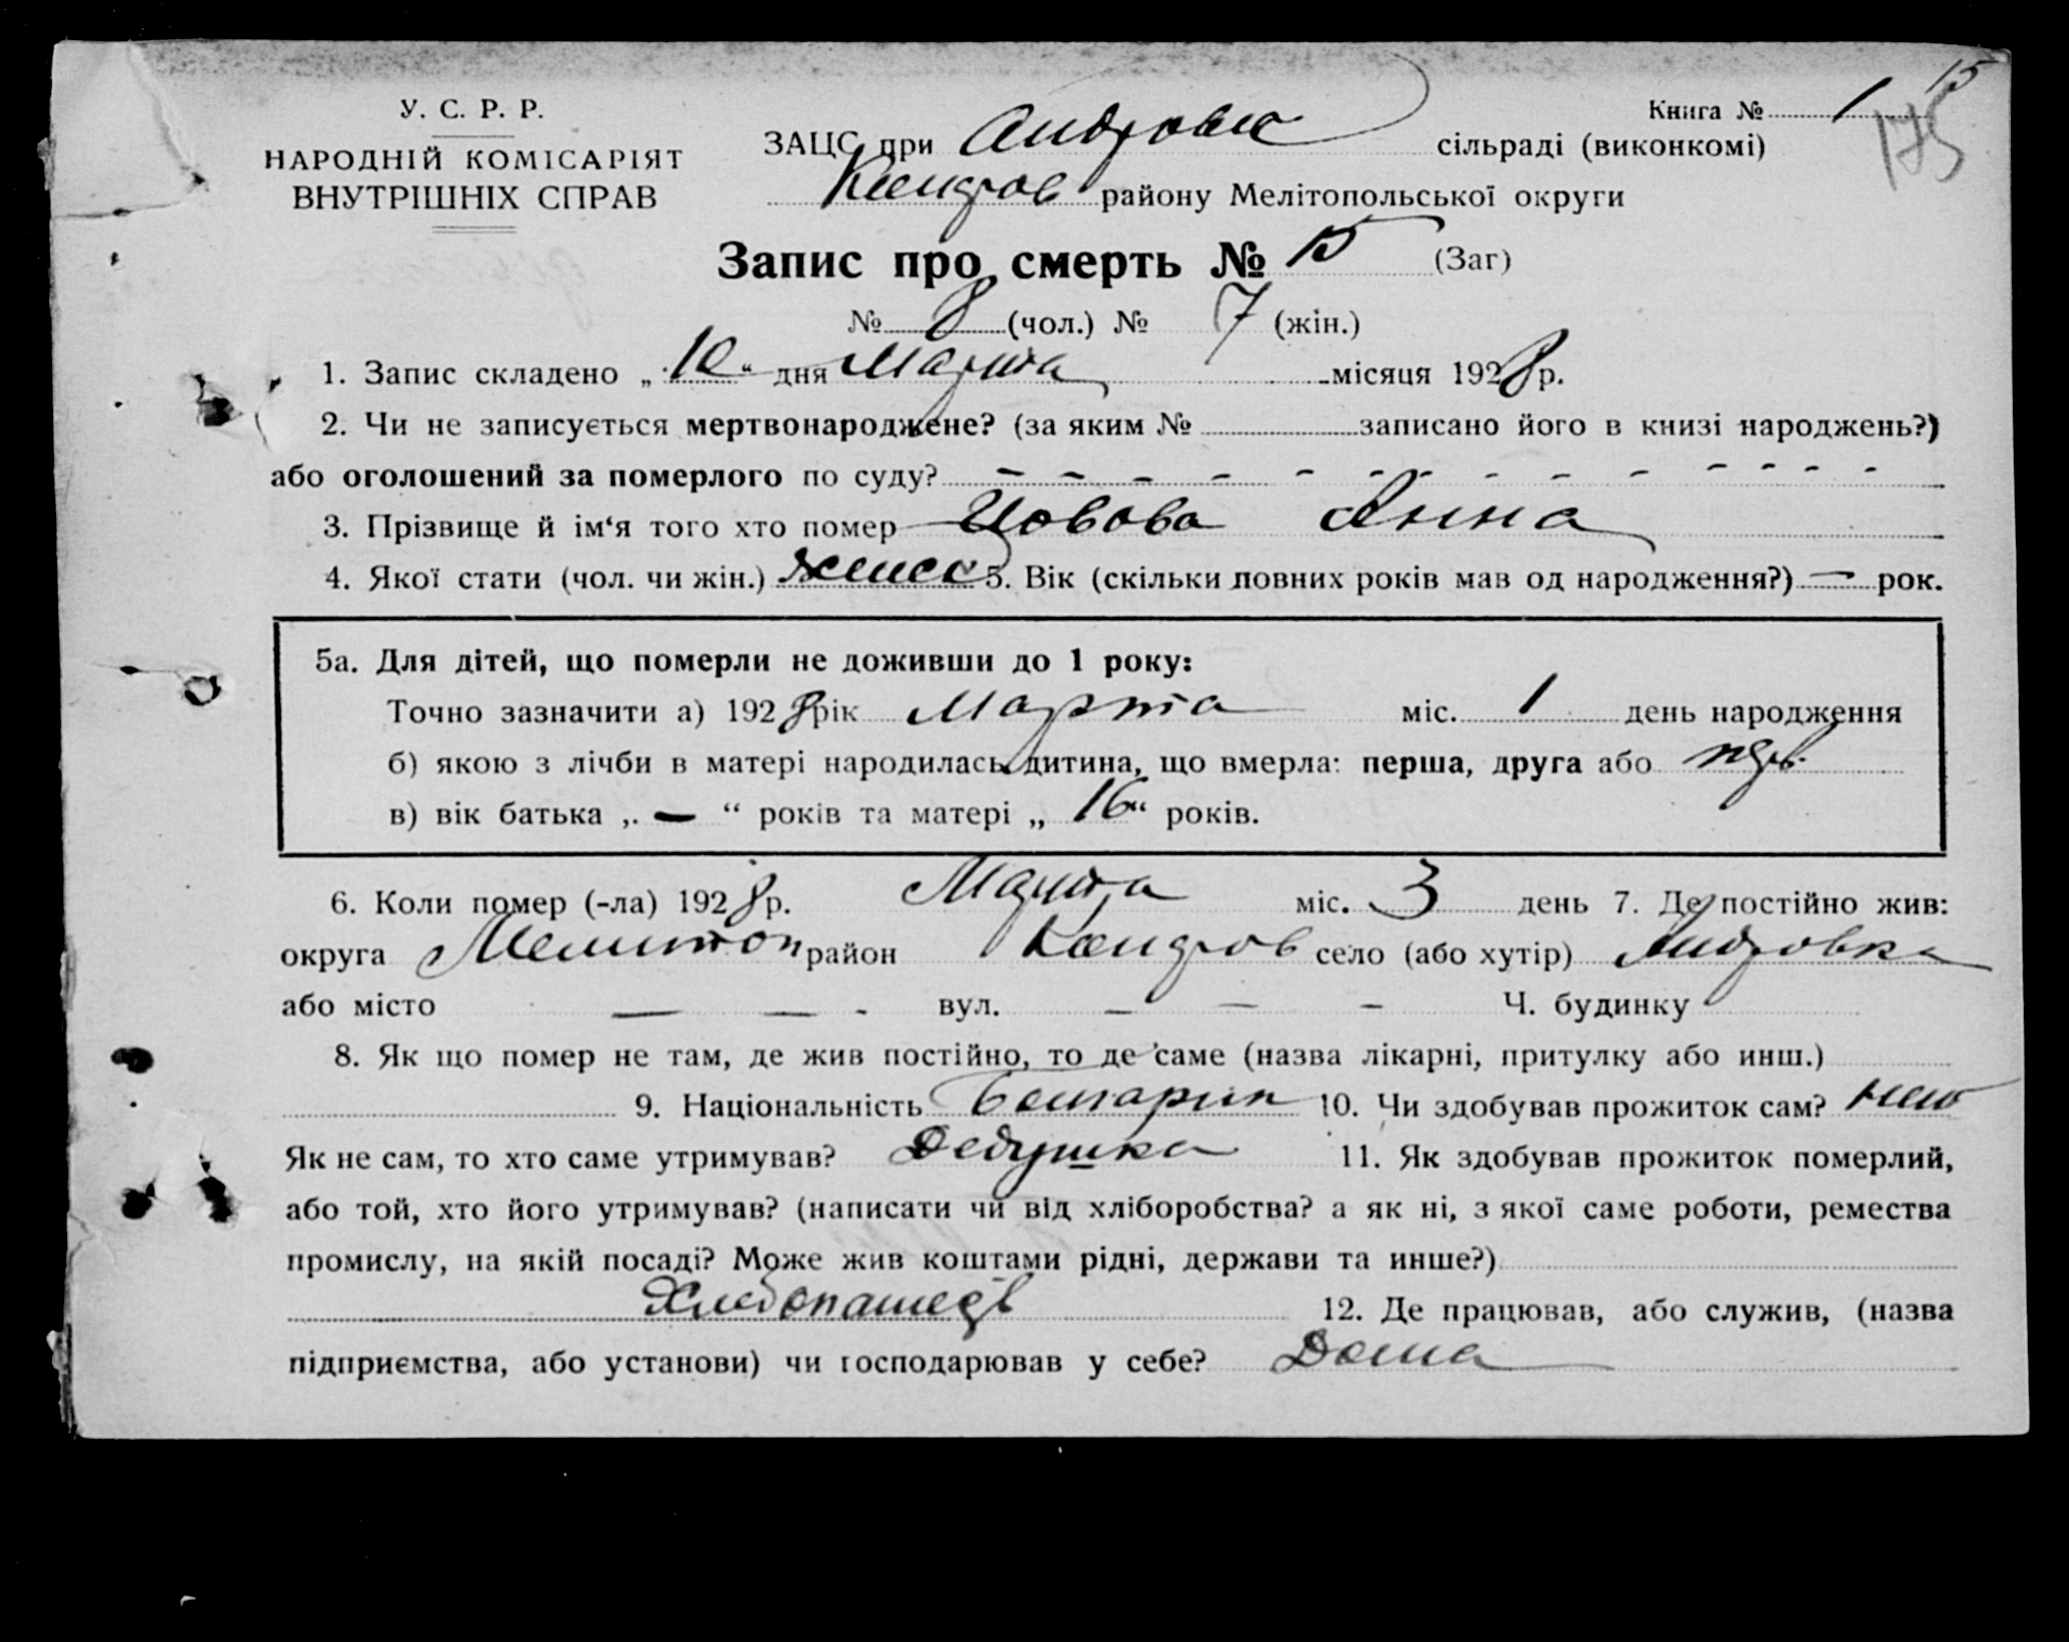 15
Книга № 1
175
У. С. Р. Р.
НАРОДНІЙ КОМІСАРІЯТ
ВНУТРІШНІХ СПРАВ
ЗАЦС при Андровск сільраді (виконкомі)
району Мелітопольської округи
Запис про смерть № 15 (Заг)
№ 8 (чол.) № 7 (жін.)
1. Запис складено „10“ дня Марта місяця 1928 р.
2. Чи не записується мертвонароджене? (за яким № записано його в книзі народжень?)
або оголошений за померлого по суду? - - - - - - - - - - - -
3. Прізвище й ім‘я того хто помер Цовова Анна
4. Якої стати (чол. чи жін.) женск 5. Вік (скільки повних років мав од народження?) — рок.
5а. Для дітей, що померли не доживши до 1 року:
Точно зазначити а) 1928 рік Марта міс. 1 день народження
б) якою з лічби в матері народилась дитина, що вмерла: перша, друга або
в) вік батька „ — “ років та матері „ 16 “ років.
6. Коли помер (-ла) 1928 р. Марта міс. 3 день 7. Де постійно жив:
округа Мелитоп район село (або хутір) Андровка
або місто — — - вул. — — - Ч. будинку
8. Як що помер не там, де жив постійно, то де саме (назва лікарні, притулку або инш.)
9. Національність Болгарин 10. Чи здобував прожиток сам? нет
Як не сам, то хто саме утримував? Дедушка 11. Як здобував прожиток померлий,
або той, хто його утримував? (написати чи від хліборобства? а як ні, з якої саме роботи, ремества
промислу, на якій посаді? Може жив коштами рідні, держави та инше?)
Хлебопашедв 12. Де працював, або служив, (назва
підприємства, або установи) чи господарював у себе? Дома